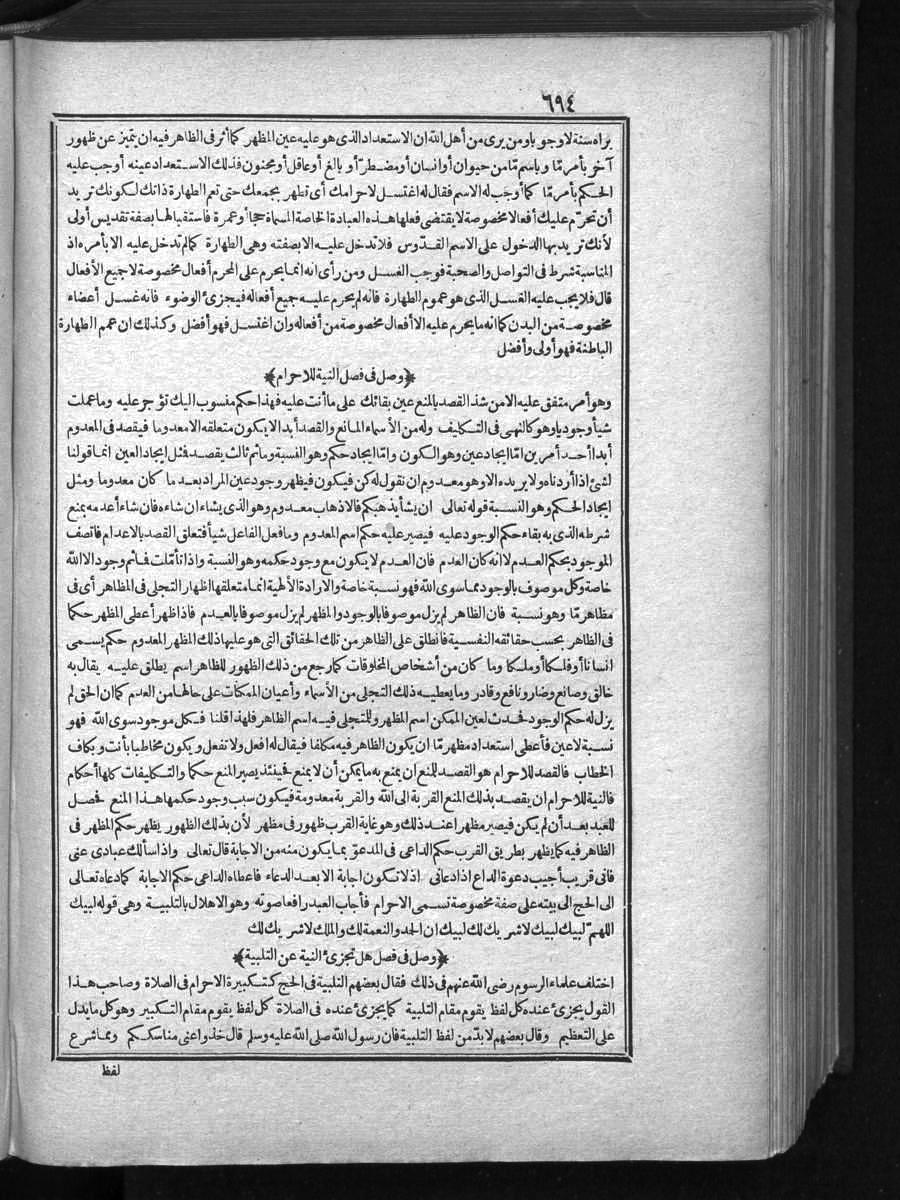 ٦٩٤
يراه سنة لا وجوبا ومن يرى من أهل الله ان الاستعداد الذى هو عليه عين المظهر كما أثر فى الظاهر فيه ان يتميز عن ظهور
آخر بأمر مّا وباسم مّا من حيوان أو انسان أو مضطرّ أو بالغ أو عاقل أو مجنون فذلك الاستعداد عينه أوجب عليه
الحكم بأمر مّا كما أوجب له الاسم فقال له اغتسل لاحرامك أى تطهر بجمعك حتى تعم الطهارة ذاتك لكونك تريد
أن تحرّم عليك أفعالا مخصوصة لا يقتضى فعلها هذه العبادة الخاصة المسماة حجا أو عمرة فاستقبالها بصفة تقديس أولى
لأنك تريد بها الدخول على الاسم القدّوس فلا تدخل عليه الا بصفته وهى الطهارة كما لم تدخل عليه الا بأمره اذ
المناسبة شرط فى التواصل والصحبة فوجب الغسل ومن رأى انه انما يحرم على المحرم أفعال مخصوصة لا جميع الأفعال
قال فلا يجب عليه الغسل الذى هو عموم الطهارة فانه لم يحرم عليه جميع أفعاله فيجزئ الوضوء فانه غسل أعضاء
مخصوصة من البدن كما انه ما يحرم عليه الا أفعال مخصوصة من أفعاله وان اغتسل فهو أفضل وكذلك ان عمم الطهارة
الباطنة فهو أولى وأفضل
﴿وصل فى فصل النية للاحرام﴾
وهو أمر متفق عليه الا من شذ القصد بالمنع عين بقائك على ما أنت عليه فهذا حكم منسوب اليك تؤجر عليه وما عملت
شيأ وجوديا وهو كالنهى فى التكليف وله من الأسماء المانع والقصد أبدا لا يكون متعلقه الا معدوما فيقصد فى المعدوم
أبدا أحد أمرين اما ايجاد عين وهو الكون واما ايجاد حكم وهو النسبة وما ثم ثالث يقصد فمثل ايجاد العين انما قولنا
لشئ اذا أردناه ولا يريده الا وهو معدوم ان نقول له كن فيكون فيظهر وجود عين المراد بعد ما كان معدوما ومثل
ايجاد الحكم وهو النسبة قوله تعالى ان يشأ يذهبكم فالاذهاب معدوم وهو الذى يشاء ان شاءه فان شاء أعدمه بمنع
شرطه الذى به بقاء حكم الوجود عليه فيصير عليه حكم اسم المعدوم وما فعل الفاعل شيأ فتعلق القصد بالاعدام فاتصف
الموجود بحكم العدم لا انه كان العدم فان العدم لا يكون مع وجود حكمه وهو النسبة واذا تأمّلت فما ثم وجود الا الله
خاصة وكل موصوف بالوجود مما سوى الله فهو نسبة خاصة والارادة الالهية انما متعلقها اظهار التجلى فى المظاهر أى فى
مظاهر مّا وهو نسبة فان الظاهر لم يزل موصوفا بالوجود والمظهر لم يزل موصوفا بالعدم فاذا ظهر أعطى المظهر حكما
فى الظاهر بحسب حقائقه النفسية فانطلق على الظاهر من تلك الحقائق التى هو عليها ذلك المظهر المعدوم حكم يسمى
انسانا أو فلكا أو ملكا وما كان من أشخاص المخلوقات كما رجع من ذلك الظهور للظاهر اسم يطلق عليه يقال به
خالق وصانع وضار ونافع وقادر وما يعطيه ذلك التجلى من الأسماء وأعيان الممكنات على حالها من العدم كما ان الحق لم
يزل له حكم الوجود فحدث لعين الممكن اسم المظهر وللمتجلى فيه اسم الظاهر فلهذا قلنا فكل موجود سوى الله فهو
نسبة لا عين فأعطى استعداد مظهر مّا ان يكون الظاهر فيه مكلفا فيقال له افعل ولا تفعل ويكون مخاطبا بأنت وبكاف
الخطاب فالقصد للاحرام هو القصد للمنع ان يمنع به ما يمكن أن لا يمنع فحينئذ يصير المنع حكما والتكليفات كلها أحكام
فالنية للاحرام ان يقصد بذلك المنع القربة الى الله والقربة معدومة فيكون سبب وجود حكمها هذا المنع فحصل
للعبد بعد أن لم يكن فيصير مظهرا عند ذلك وهو غاية القرب ظهور فى مظهر لأن بذلك الظهور يظهر حكم المظهر فى
الظاهر فيه كما يظهر بطريق القرب حكم الداعى فى المدعو بما يكون منه من الاجابة قال تعالى واذا سألك عبادى عنى
فانى قريب أجيب دعوة الداع اذا دعانى اذ لا تكون اجابة الا بعد الدعاء فاعطاه الداعى حكم الاجابة كما دعاه تعالى
الى الحج الى بيته على صفة مخصوصة تسمى الاحرام فأجاب العبد رافعا صوته وهو الاهلال بالتلبية وهى قوله لبيك
اللهمّ لبيك لبيك لا شريك لك لبيك ان الحمد والنعمة لك والملك لا شريك لك
﴿وصل فى فصل هل تجزئ النية عن التلبية﴾
اختلف علماء الرسوم رضى الله عنهم فى ذلك فقال بعضهم التلبية فى الحج كتكبيرة الاحرام فى الصلاة وصاحب هذا
القول يجزئ عنده كل لفظ يقوم مقام التلبية كما يجزئ عنده فى الصلاة كل لفظ يقوم مقام التكبير وهو كل ما يدل
على التعظيم وقال بعضهم لابدّ من لفظ التلبية فان رسول الله صلى الله عليه وسلم قال خذوا عنى مناسككم ومما شرع
لفظ